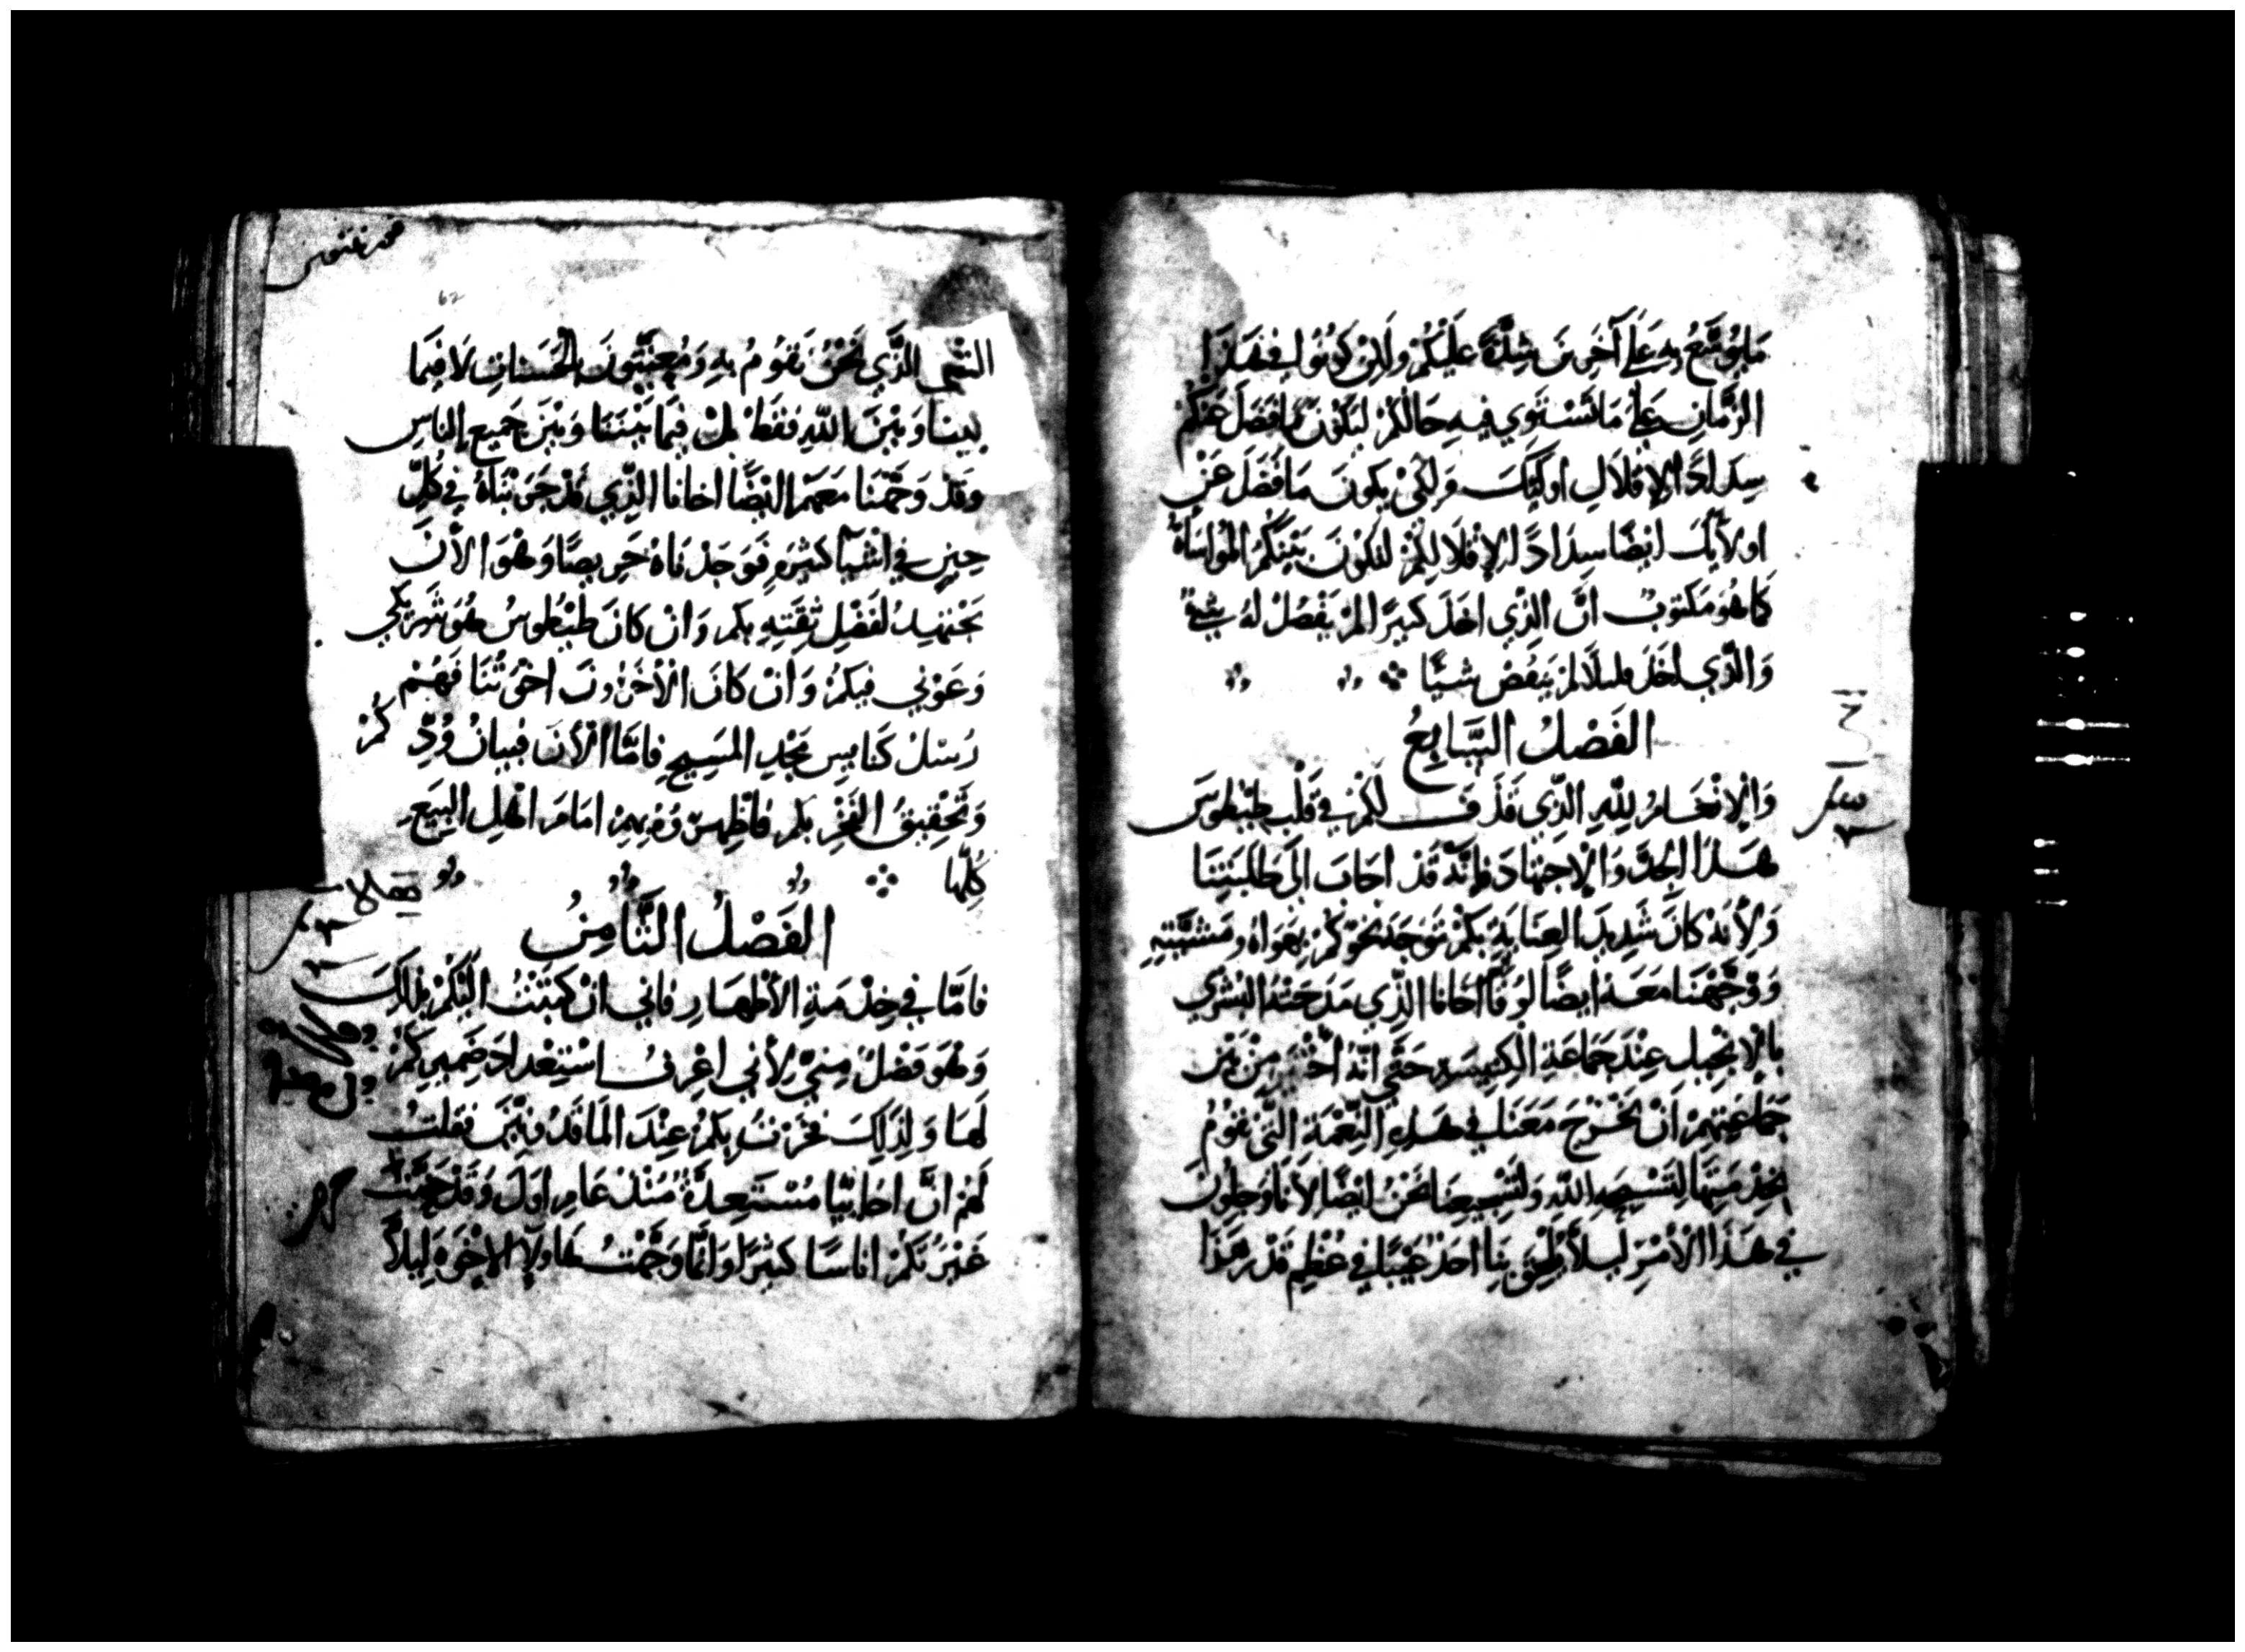 ما يوسع به على آخرين شدة عليكم ولكن كونوا في هذا
الزمان على ما تستوي فيه حالكم ليكون ما فضل عنكم
سدادًا لإقلال اوليك ولكي يكون ما فضل عن
اولايك ايضًا سدادًا لإقلالكم لتكون بينكم المواساة
كما هو مكتوب ان الذي اخذ كبيرًا لم يفضل له شي
والذي اخذ قليلًا لم ينقص شيًا
الفصل السابع
والإنعام لله الذي قذف لكم في قلب طيطوس
هذا الجد والإجتهاد فإنه قد اجاب الى طلبتنا
ولأنه كان شديد العناية بكم توجه نحوكم بهواه ومشيته
ووجهنا معه ايضًا لوقا اخانا الذي مدحته البشرى
بالإنجيل عند جماعة الكنيسة حتى انه اختير من بين
جماعتهم ان يخرج معنا في هذه النعمة التي نقوم
بخدمتها لتسبحه الله ولتشجيعنا نحن ايضًا لأنا وجلون
في هذا الأمر ليلا يلحق بنا احد عيبًا في عظم قدر هذا
62
الشي الذي نحن نقوم به ومعنيون بالحسنات لا فيما
بيننا وبين الله فقط بل فيما بيننا وبين جميع الناس
وقد وجهنا معهم ايضًا اخانا الذي قد جربناه في كل
حين في اشيآ كثيرة فوجدناه حريصًا وهو الأن
يجتهد لفضل ثقته بكم وان كان طيطوس هو شريكي
وعوني فيكم وان كان الأخرون اخوتنا فهم
رسل كنايس مجد المسيح فامّا الأن فبيان ودكم
وتحقيق الفخر بكم فاظهروه بهم امام اهل البيع
كلها
الفصل الثامن
فامّا في خدمة الأطهار فاني ان كتبت اليكم بذلك
وهو فضل مني لأني اعرف استعداد ضميركم
لها ولذلك فخرت بكم عند الماقدونيين فقلت
لهم ان اخاييا مستعدة منذ عام اول وقد حمت
غيرتكم اناسًا كثيرًا وانما وجهت هاولآ الإخوة ليلا